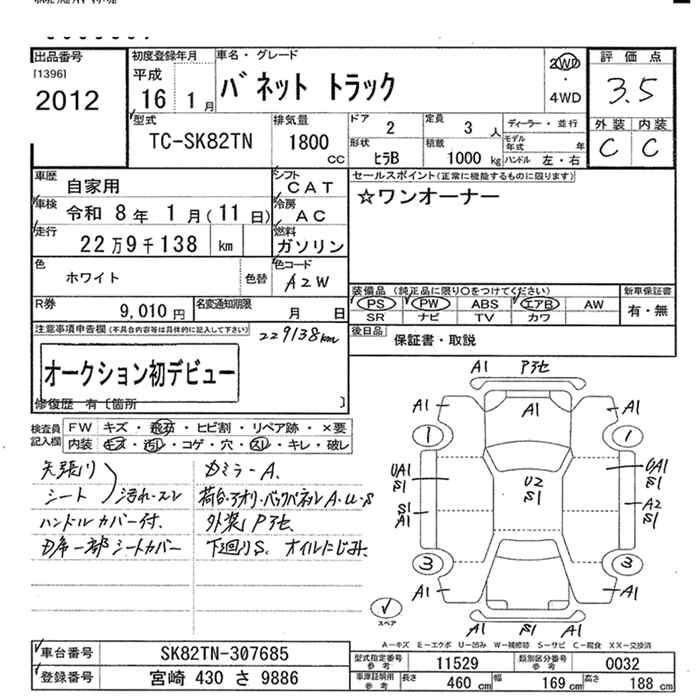 出品番号
[1396]
2012
初度登録年月
平成
16 1月
車名・グレード
バネット トラック
2WD
・
4WD
評価点
3.5
外装 内装
C C
型式
TC-SK82TN
排気量
1800
CC
ドア
2
定員
3 人
形状
ヒラB
積載
1000 kg
ディーラー・並行
モデル年式 年
ハンドル 左・右
車歴
自家用
シフト
CAT
車検 令和 8年 1月(11日)
冷房
AC
走行
22万9千138 km
燃料
ガソリン
色
ホワイト
色替
色コード
A2W
R券
9,010円
名変通知期限
月 日
セールスポイント(正常に機能するものに限ります)
☆ワンオーナー
装備品 (純正品に限り○をつけてください)
PS PW ABS エアB AW
SR ナビ TV カワ
新車保証書
有・無
後日品
保証書・取説
注意事項申告欄(不具合内容等は具体的に記入して下さい)
229138km
オークション初デビュー
修復歴 有〔箇所 〕
検査員記入欄
FW キズ・飛石・ヒビ割・リペア跡・×要
内装 キズ・汚れ・コゲ・穴・スレ・キレ・破レ
天張り
シート 汚れ・スレ
ハンドルカバー付.
D席一部シートカバー
Dミラー A.
荷台.アオリ・バックパネル A.U.S
外装 Pアセ
下廻りS. オイルにじみ
A1 Pアセ
A1 A1 A1
1 1
UA1
S1
U2
S1
UA1
S1
S1
A1
A2
S1
3 3
A1 A1
A1 S1 A1
スペア
A-キズ E-エクボ U-凹み W-補修跡 S-サビ C-腐食 XX-交換済
車台番号
SK82TN-307685
登録番号
宮崎 430 さ 9886
型式指定番号
参考
11529
類別区分番号
参考
0032
車庫証明用
参考
長さ 460 cm
幅 169 cm
高さ 188 cm